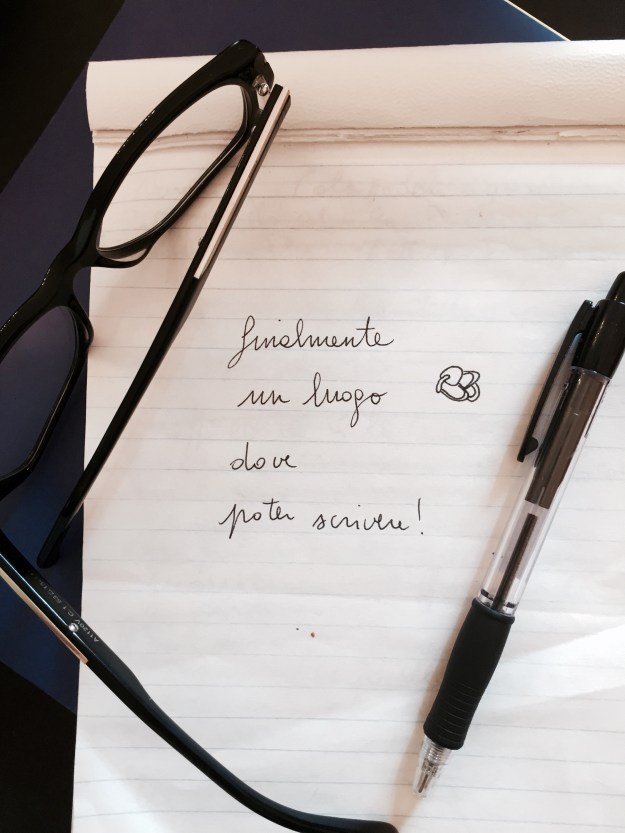 finalmente
un luogo
dove
poter scrivere!